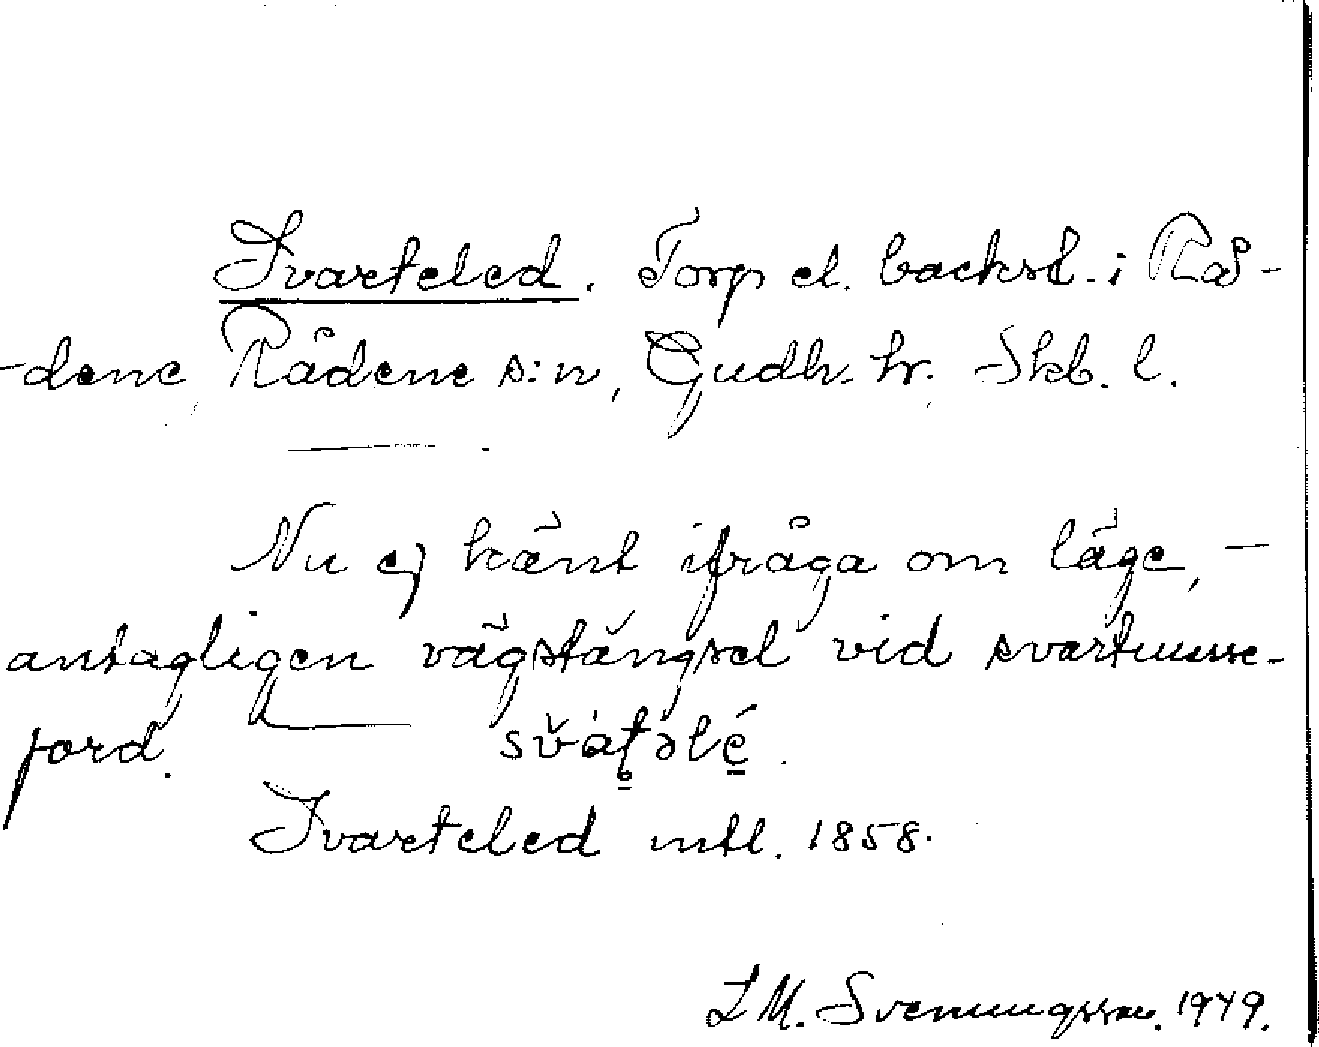 Svarteled. Torp el. backst. i Rå-
-dene, Rådene s:n, Gudh. hr. Skb. l.
Nu ej känt ifråga om läge, -
antagligen vägstängsel vid svartmosse-
jord.
Svarteled mtl. 1858.
L M. Svenungsson. 1949.